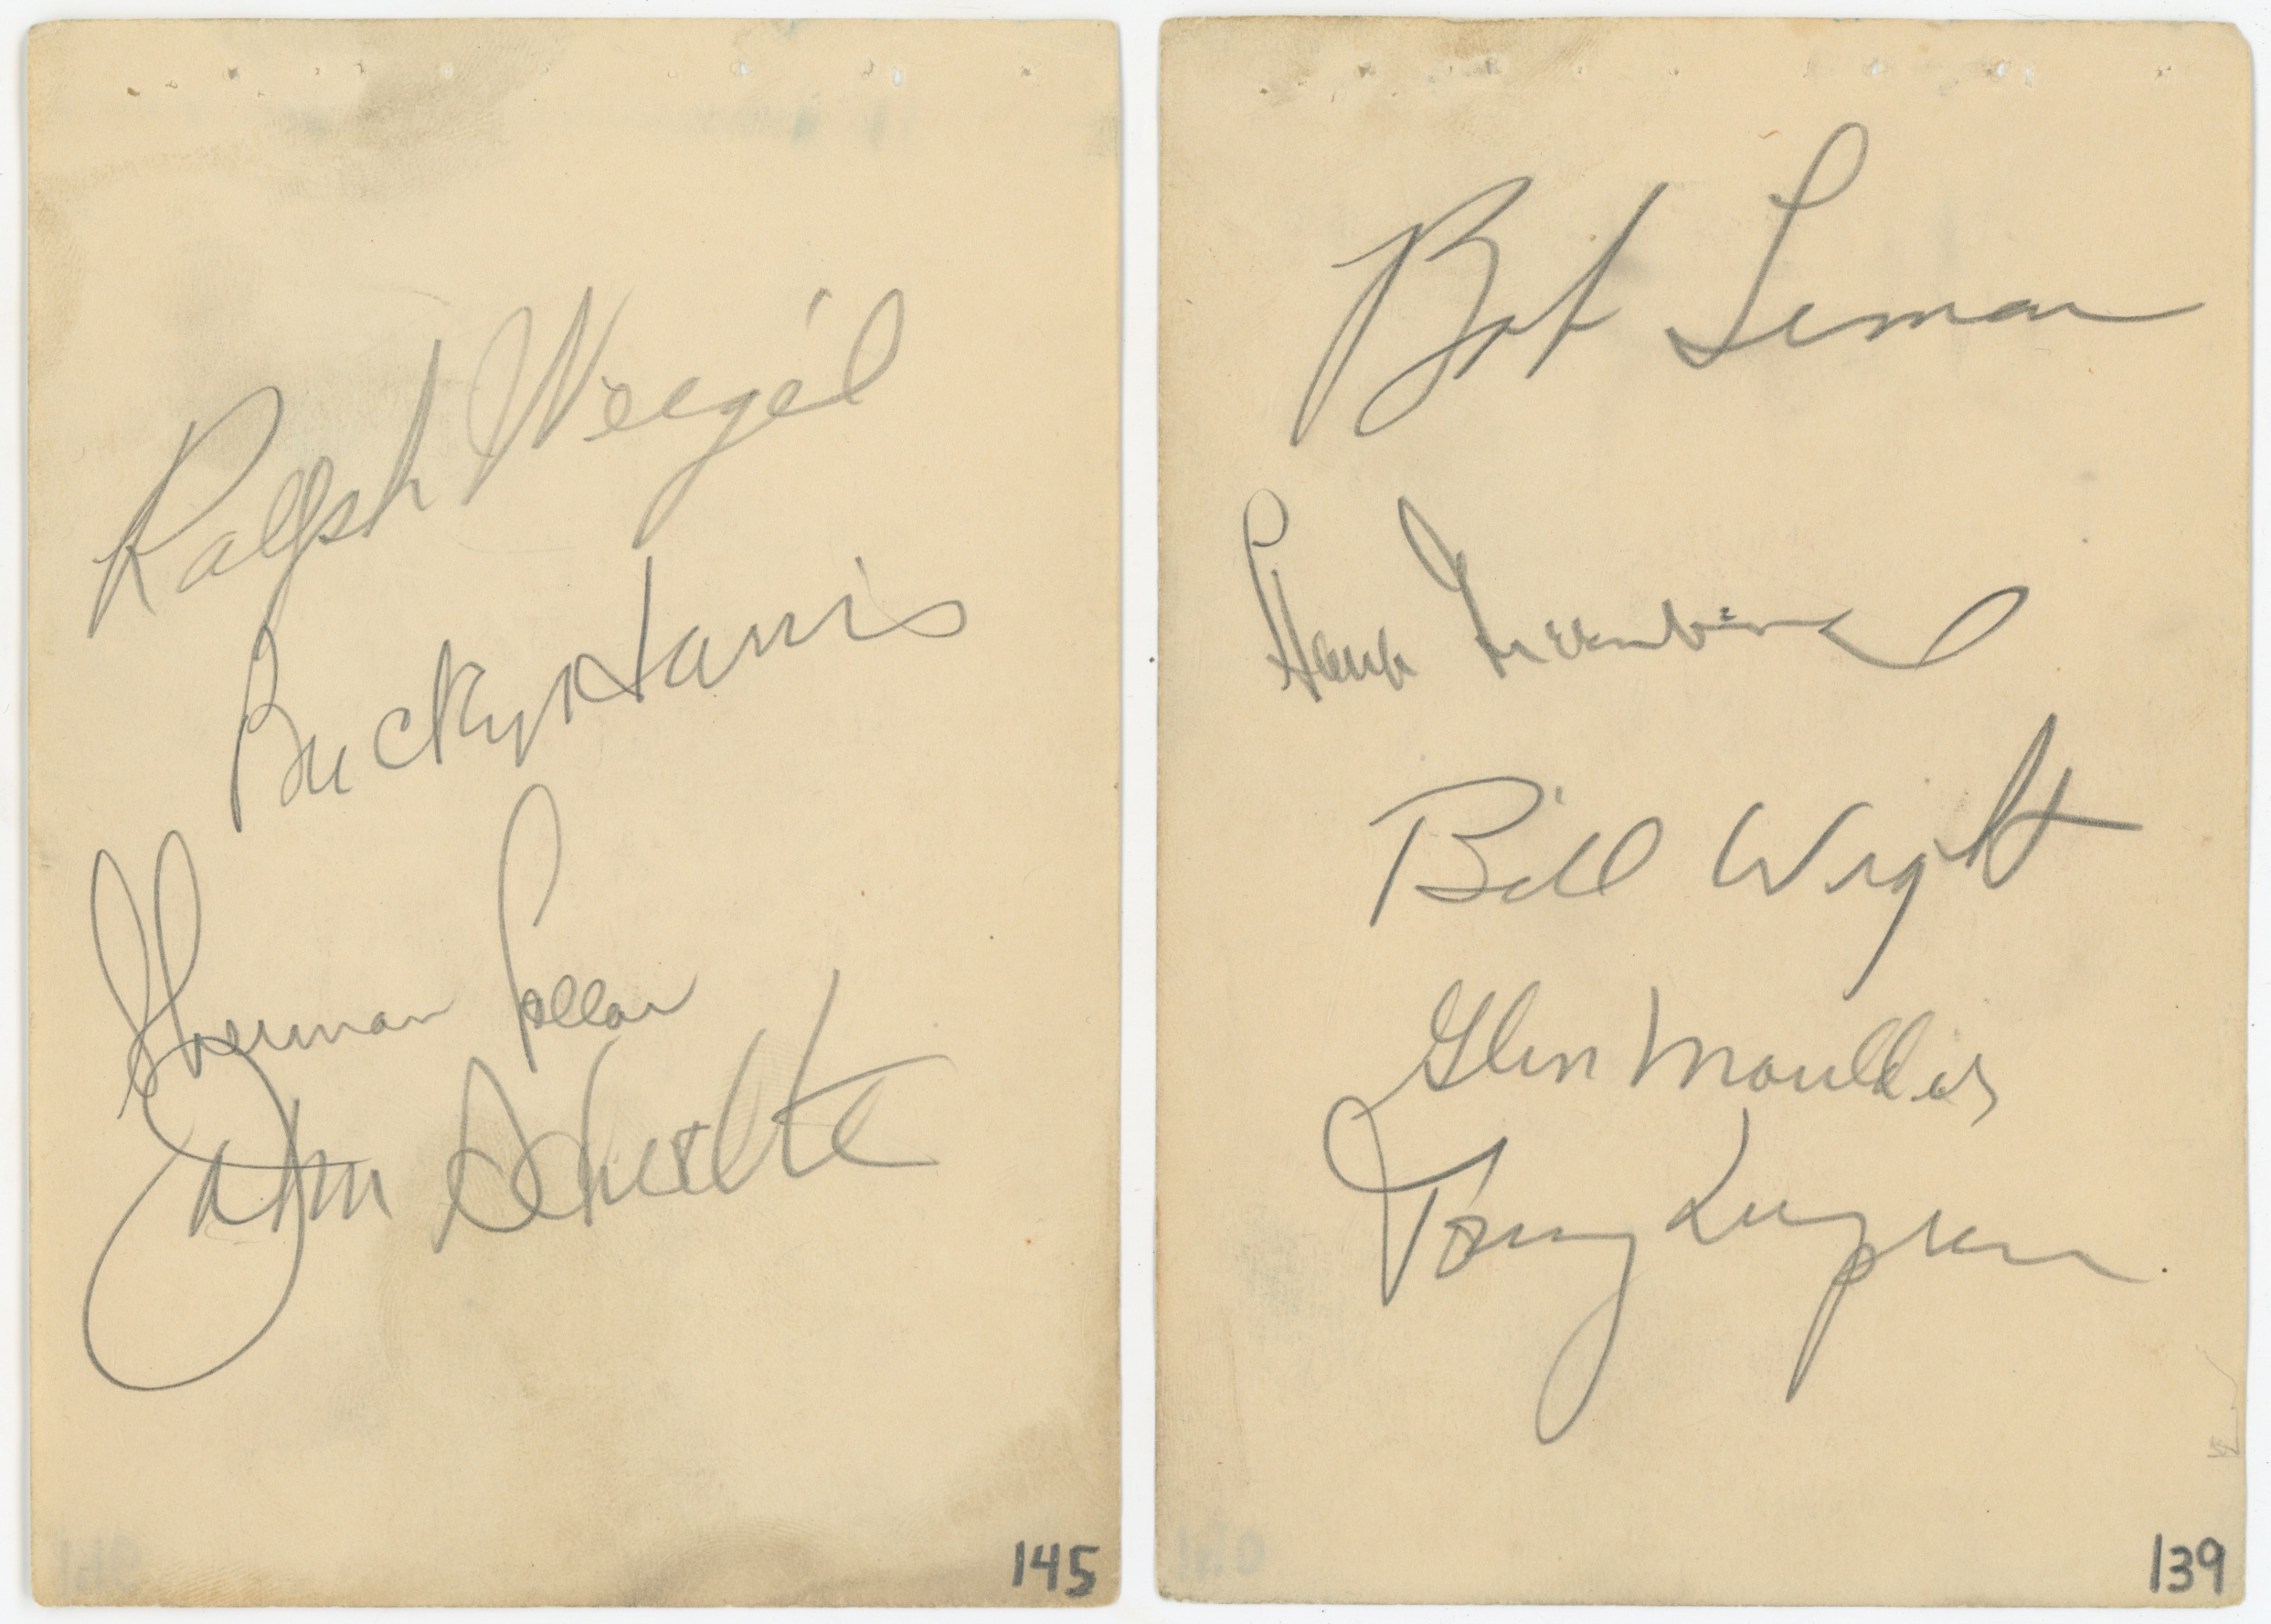 Ralph Weigel
Bucky Harris
Sherman Lollar
John Schulte
145
Bob Lemon
Hank Greenberg
Bill Wight
Glen Moulder
Tony Lupien
139